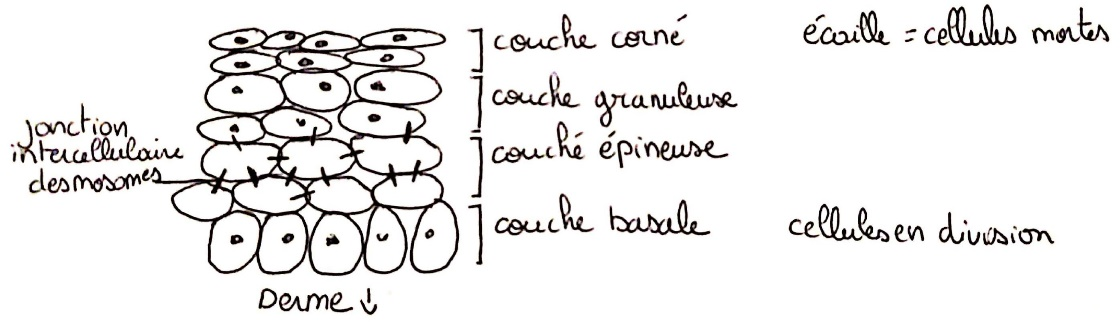 couche corné
écaille = cellules mortes
couche granuleuse
jonction
intercellulaire
desmosomes
couché épineuse
couche basale
cellules en division
Derme ↓